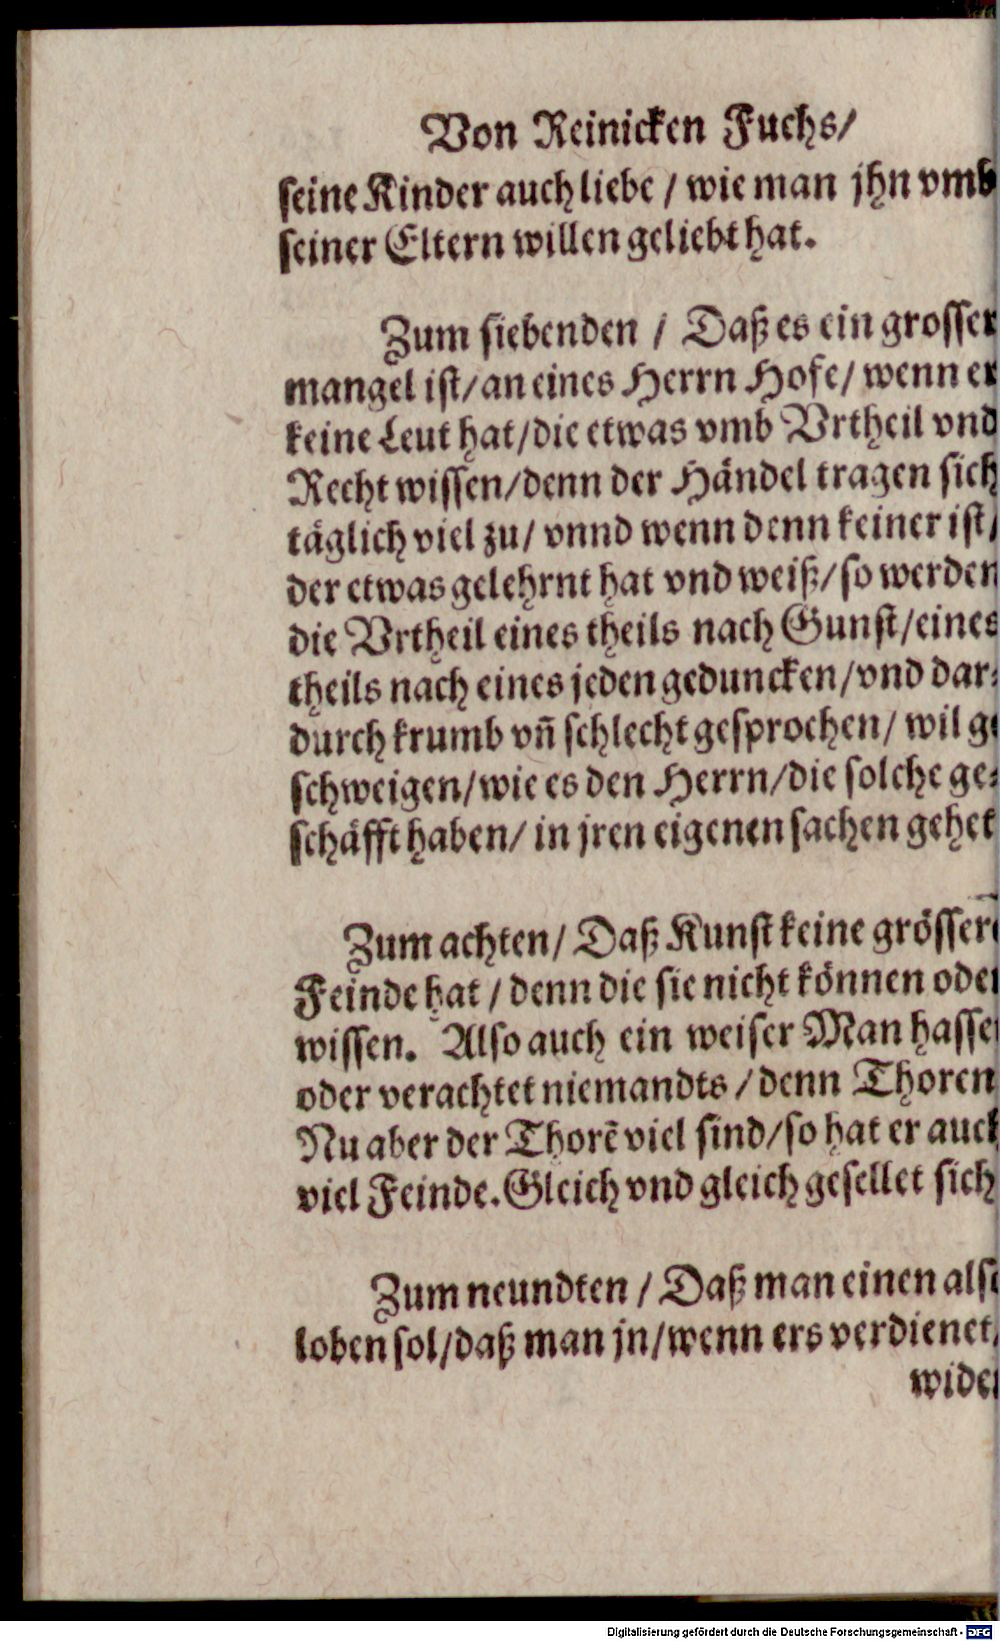 Von Reinicken Fuchs/
seine Kinder auch liebe / wie man jhn vmb
seiner Eltern willen geliebt hat.
Zum siebenden / Daß es ein grosser
mangel ist/an eines Herrn Hofe/ wenn er
keine Leut hat/die etwas vmb Vrtheil vnd
Recht wissen/denn der Händel tragen sich
täglich viel zu/ vnnd wenn denn keiner ist/
der etwas gelehrnt hat vnd weiß/so werden
die Vrtheil eines theils nach Gunst/eines
theils nach eines jeden geduncken/vnd dar-
durch krumb vñ schlecht gesprochen/ wil ge
schweigen/wie es den Herrn/die solche ge-
schäfft haben/ in jren eigenen sachen gehet
Zum achten/ Daß Kunst keine grössere
Feinde hat / denn die sie nicht können oder
wissen. Also auch ein weiser Man hasset
oder verachtet niemandts / denn Thoren
Nu aber der Thorẽ viel sind/so hat er auch
viel Feinde. Gleich vnd gleich gesellet sich
Zum neundten / Daß man einen also
loben sol/daß man jn/wenn ers verdienet/
wider
Digitalisierung gefördert durch die Deutsche Forschungsgemeinschaft - DFG